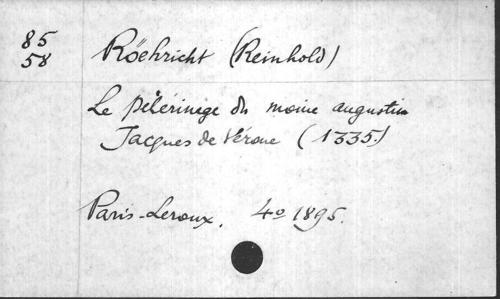 85
58
Röehricht (Reinhold)
Le Pélérinage du moine augustin
Jacques de Vérone (1335.)
Paris-Leroux. 4º 1895.